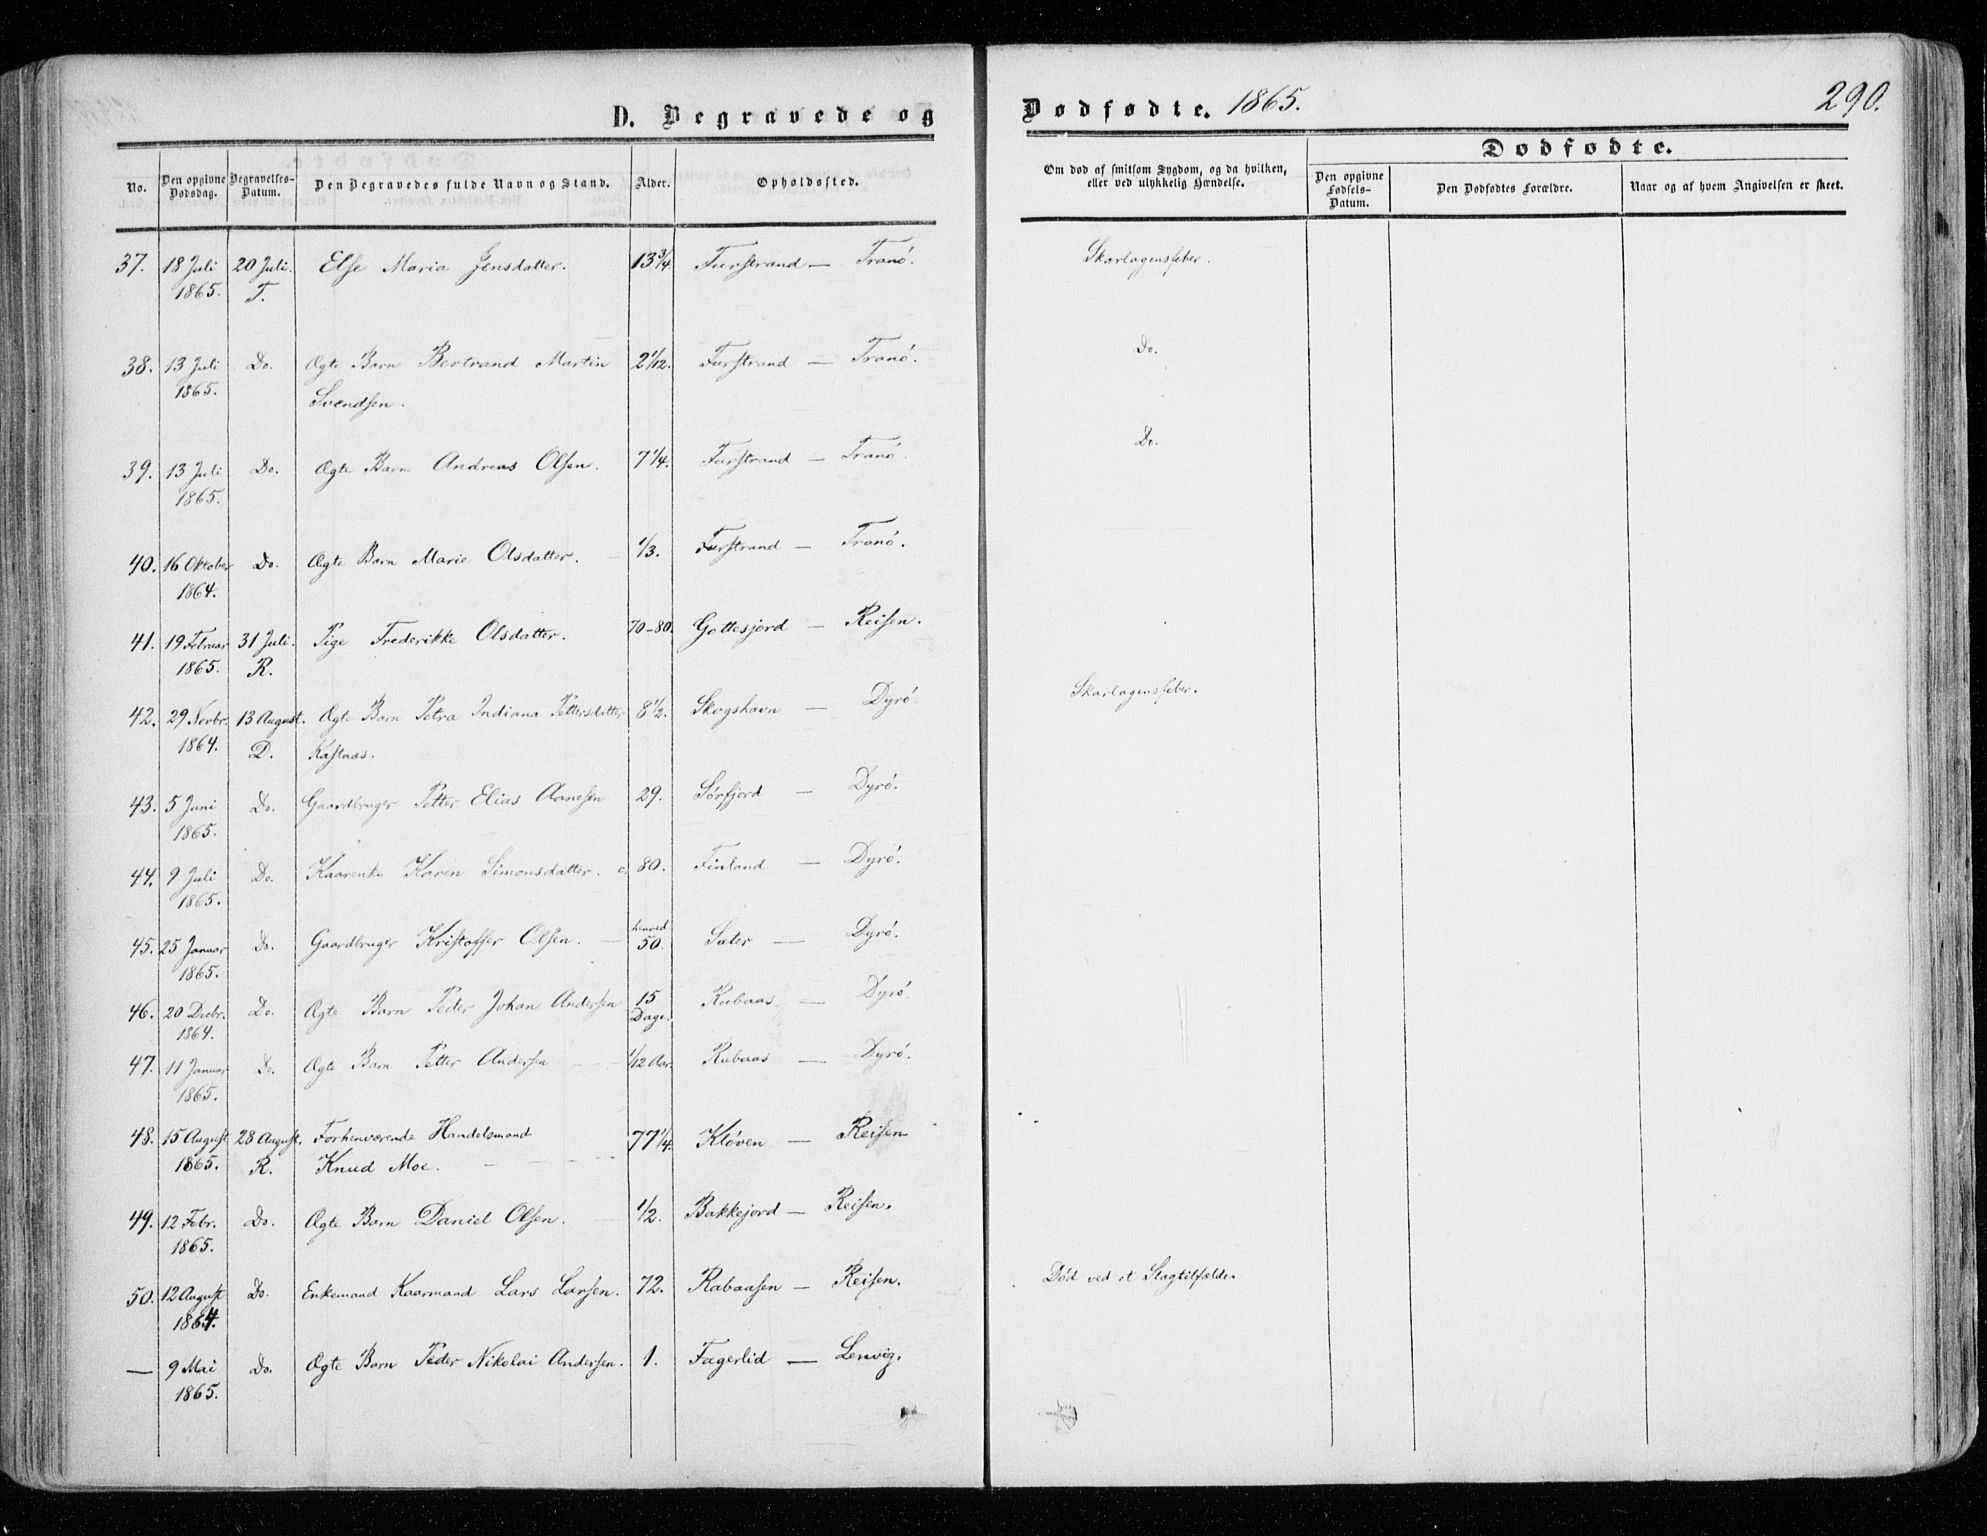 D. Begravede og
Dødfødte. 1865.
290.
No.
Den opgivne Dødsdag.
Begravelses-Datum.
Den Begravedes fulde Navn og Stand.
Alder.
Opholdssted.
Om død af smitsom Sygdom, og da hvilken, eller ved ulykkelig Hændelse.
Dødfødte.
Den opgivne Fødsels-Datum.
Den Dødfødtes Forældre.
Naar og af hvem Angivelsen er skeet.
37. 18 Juli 20 Juli. Else Maria Jensdatter. 13 3/4 Furstrand — Tranö. Skarlagensfeber.
1865. T.
38. 13 Juli Do. Ægte Barn Bertrand Martin 2 1/12. Furstrand — Tranö. Do.
1865. Svendsen.
39. 13 Juli Do. Ægte Barn Andreas Olsen. 7 1/4. Furstrand — Tranö. Do.
1865.
40. 16 Oktober Do. Ægte Barn Marie Olsdatter. 1/3. Furstrand — Tranö.
1864.
41. 19 Februar 31 Juli. Pige Frederikke Olsdatter. 70-80. Gottesjord — Reisen.
1865. R.
42. 29 Novbr. 13 August. Ægte Barn Petra Indiana Pettersdatter 8 1/2. Skogshavn — Dyrö. Skarlagensfeber.
1864. D. Kastnæs.
43. 5 Juni Do. Gaardbruger Petter Elias Aanesen 29. Sörfjord — Dyrö.
1865.
44. 9 Juli Do. Kaarenke Karen Simonsdatter. c. 80. Finland — Dyrö.
1865.
45. 25 Januar Do. Gaardbruger Kristoffer Olsen. — henved 50. Sæter — Dyrö.
1865.
46. 20 Decbr. Do. Ægte Barn Peder Johan Andersen 15 Dage. Rubaas — Dyrö.
1864.
47. 11 Januar Do. Ægte Barn Petter Andersen 1/12 Aar. Rubaas — Dyrö.
1865.
48. 15 August 28 August. Forhenværende Handelsmand 77 1/4. Klöven — Reisen
1865. R. Knud Moe.
49. 12 Febr. Do. Ægte Barn Daniel Olsen. 1/2. Bakkejord — Reisen.
1865.
50. 12 August Do. Enkemand Kaarmand Lars Larsen. 72. Rabaasen — Reisen. Död ved et Slagtilfælde.
1864.
— 9 Mai Do. Ægte Barn Peder Nikolai Andersen. 1. Fagerlid — Lenvig.
1865.